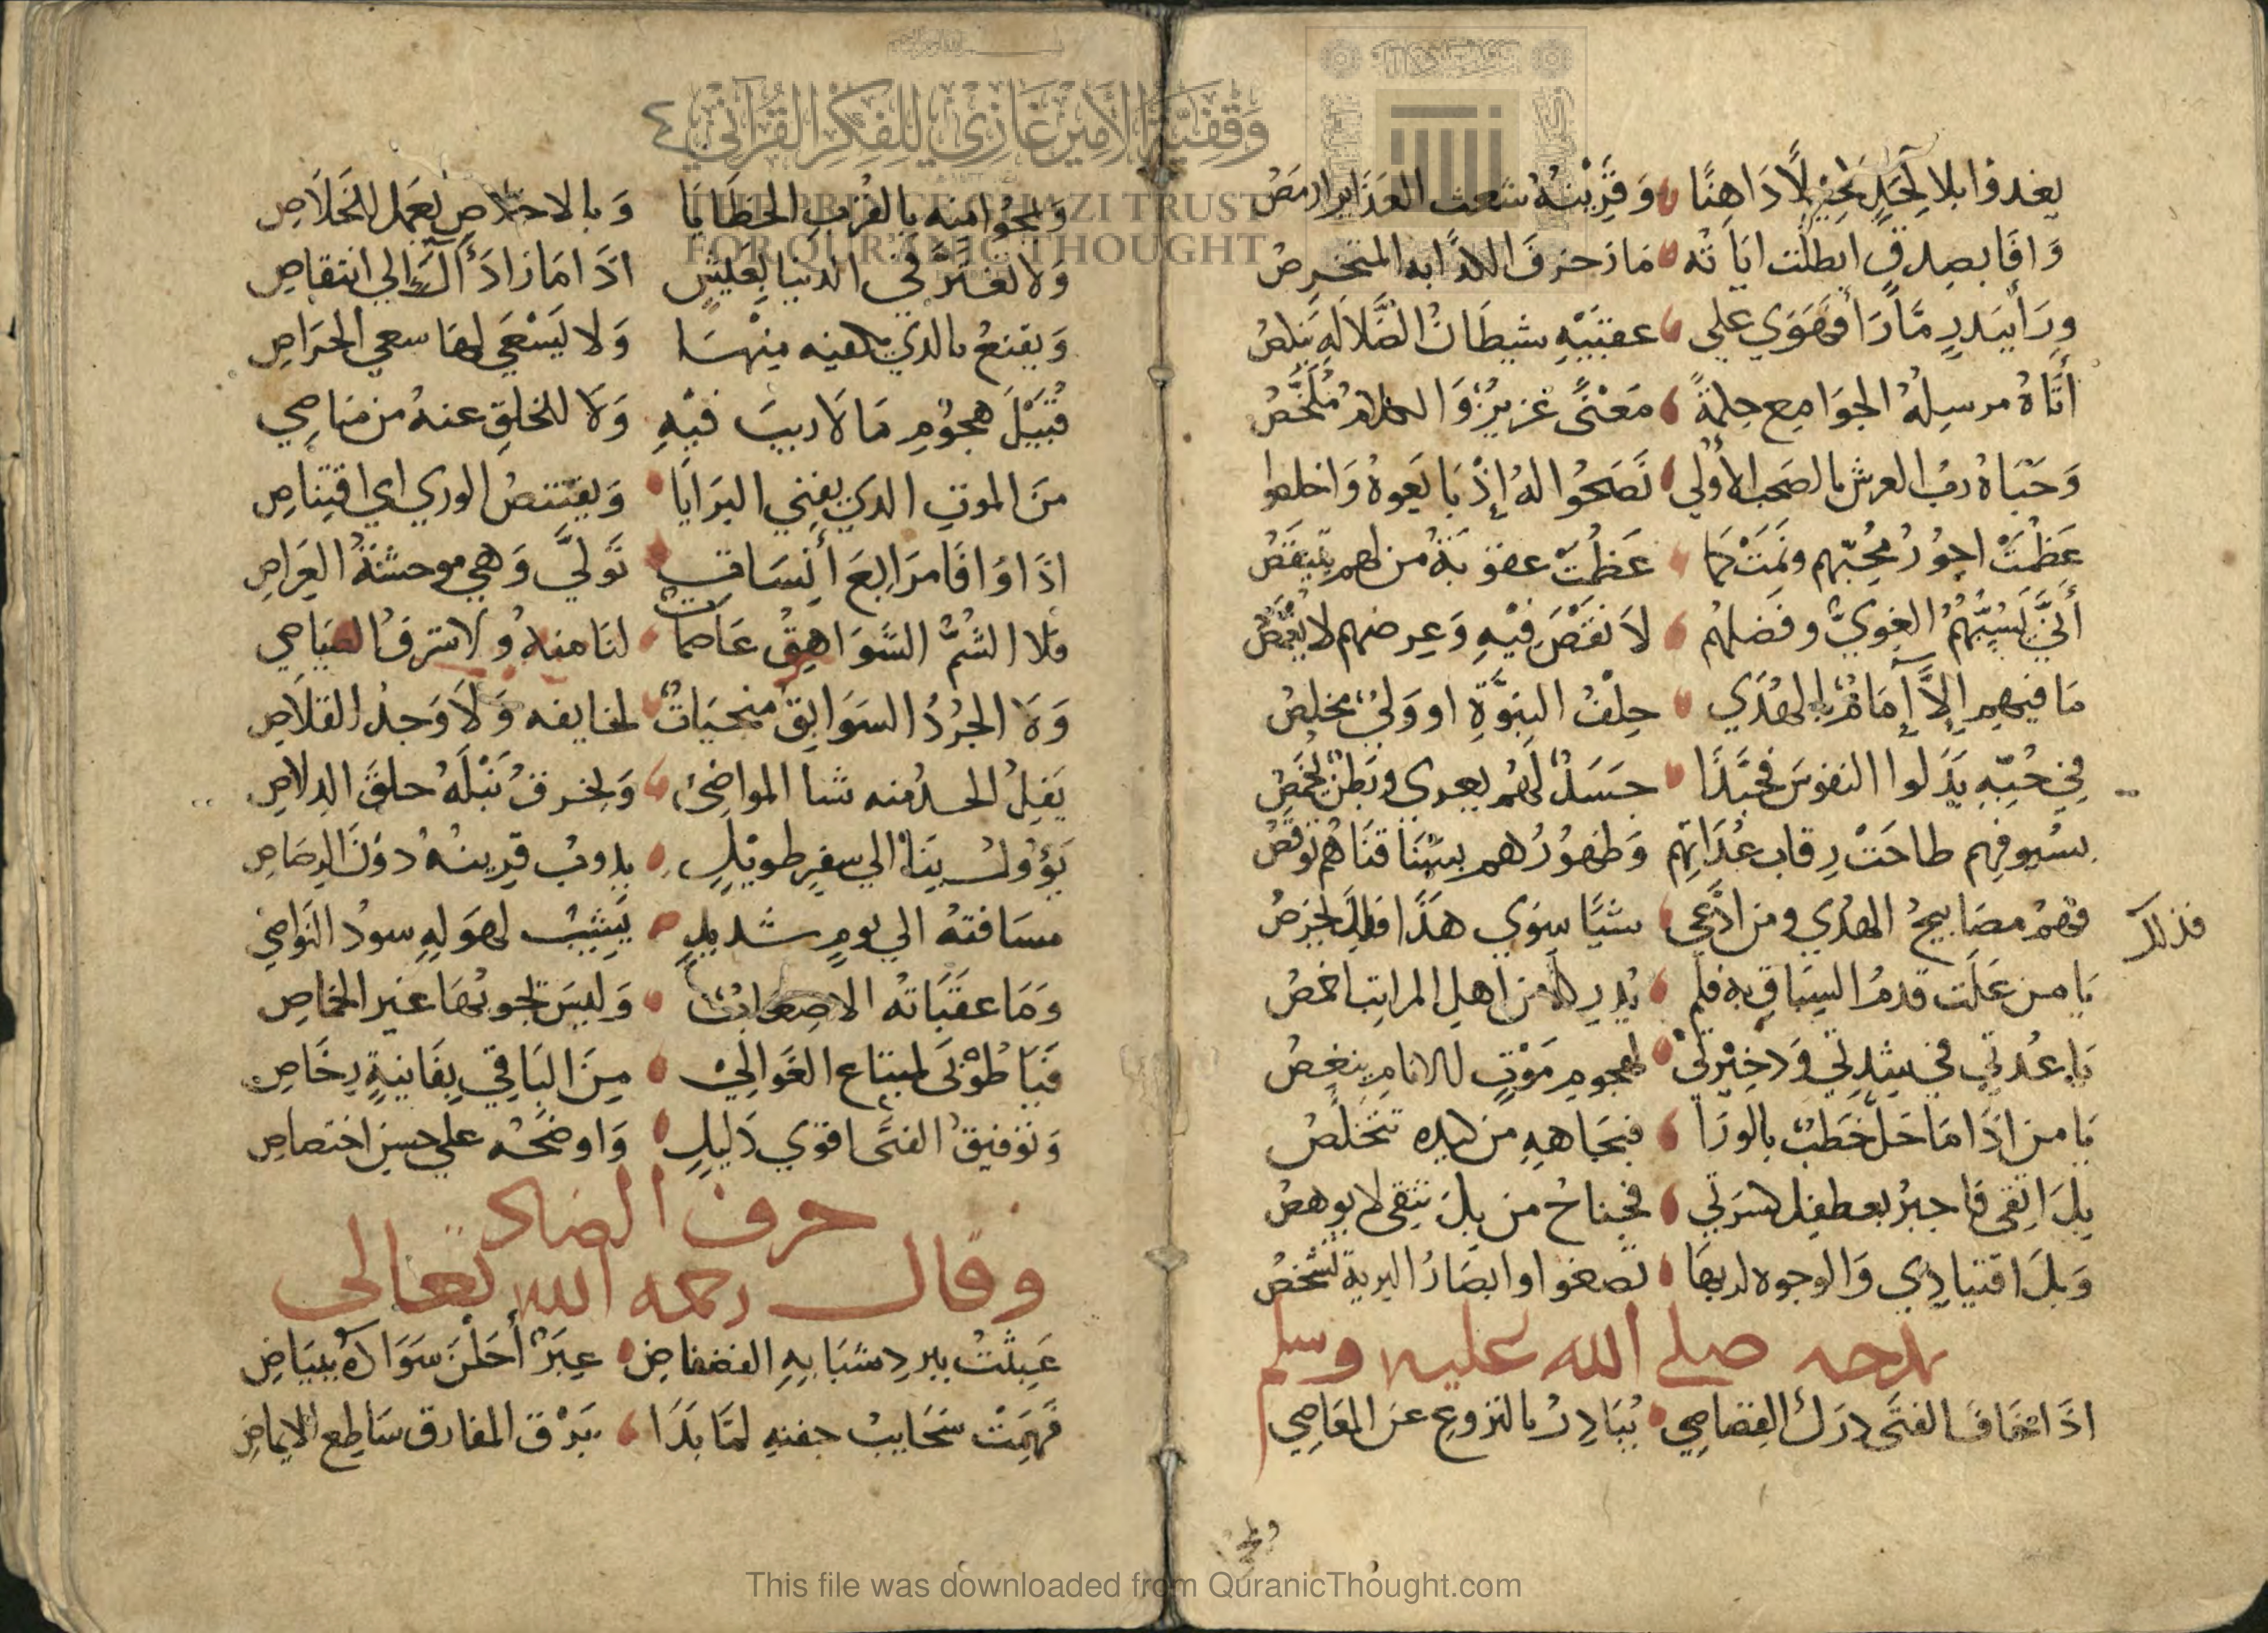 يغدوا بلا كحل كحيلا داهنا وقرينه شعث الغدائر ارمص
وافا بصدق ابطلت اياته ما زخرف الكذابه المتخرص
وراى ببدر مارأ فهوى على عقبيه شيطان الضلاله ينكص
أتاه مرسله الجوامع حكمة معنى غزير والكلام ملخص
وحباه رب العرش بالصحب الأولى نصحوا له إذ بايعوه واخلصوا
عظمت اجور محبهم ونمت كما عظمت عقوبة من لهم يتنقص
أنى يسبهم الغوي وفضلهم لا نقص فيه وعرضهم لا يغمص
ما فيهم إلا إمام بالهدى حلف النبوة او ولي مخلص
في حبه بذلوا النفوس فحبذا جسد لهم يعرى وبطن يخمص
بسيوفهم طاحت رقاب عداتهم وظهورهم بسنا قناهم توقص
فهم مصابيح الهدى ومن ادعى شيا سوى هذا فذلك يخرص
فذلك
يا من علت قدم السباق به فلم يدركه من اهل المراتب اخمص
يا عدتي في شدتي وذخيرتي لهجوم موت للانام ينغص
يا من اذا ما حل خطب بالورا فبجاهه من كيده تتخلص
بك اتقى فاجبر بعطفك كسرتي فجناح من بك يتقى لا يوهص
وبك اقتيادي والوجوه لديها تصغوا وابصار البرية تشخص
يمدحه صلى الله عليه وسلم
اذا خاف الفتى درك القصاص يبادر بالنزوع عن المعاصي
ويمحوا منه بالقرب الخطايا وبالاخلاص يعمل للخلاص
ولا تغتر في الدنيا بعيش اذا ما زاد آل الى انتقاص
ويقنع بالذي يكفيه منها ولا يسعى لها سعي الحراص
قبيل هجوم ما لا ريب فيه ولا للخلق عنه من مناص
من الموت الذي يفني البرايا ويقتنص الورى اي اقتناص
اذا وافا مرابع أنس اقوت تولى وهي موحشة العراص
فلا الشم الشواهق عاصمات لنا منه ولا شرف الصياصي
ولا الجرد السوابق منجيات لخايفه ولا وجد القلاص
يفل الحد منه شبا المواضي ويخرق نبله حلق الدلاص
يؤول بنا الى سفر طويل يذوب قرينه دون الرصاص
مسافته الى يوم شديد يشيب لهوله سود النواصي
وما عقباته الا صعاب وليس تجوبها غير الخماص
فيا طوبى لمبتاع الغوالي من الباقي بفانية رخاص
وتوفيق الفتى اقوى دليل واوضحه على حسن اختصاص
حرف الضاد
وقال رحمه الله تعالى
عبثت ببرد شبابه الفضفاض عبر أحلن سواده ببياض
فهمت سحايب جفنه لما بدا برق المفارق ساطع الايماض
وقفية الأمير غازي للفكر القرآني
THE PRINCE GHAZI TRUST
FOR QUR'ANIC THOUGHT
This file was downloaded from QuranicThought.com